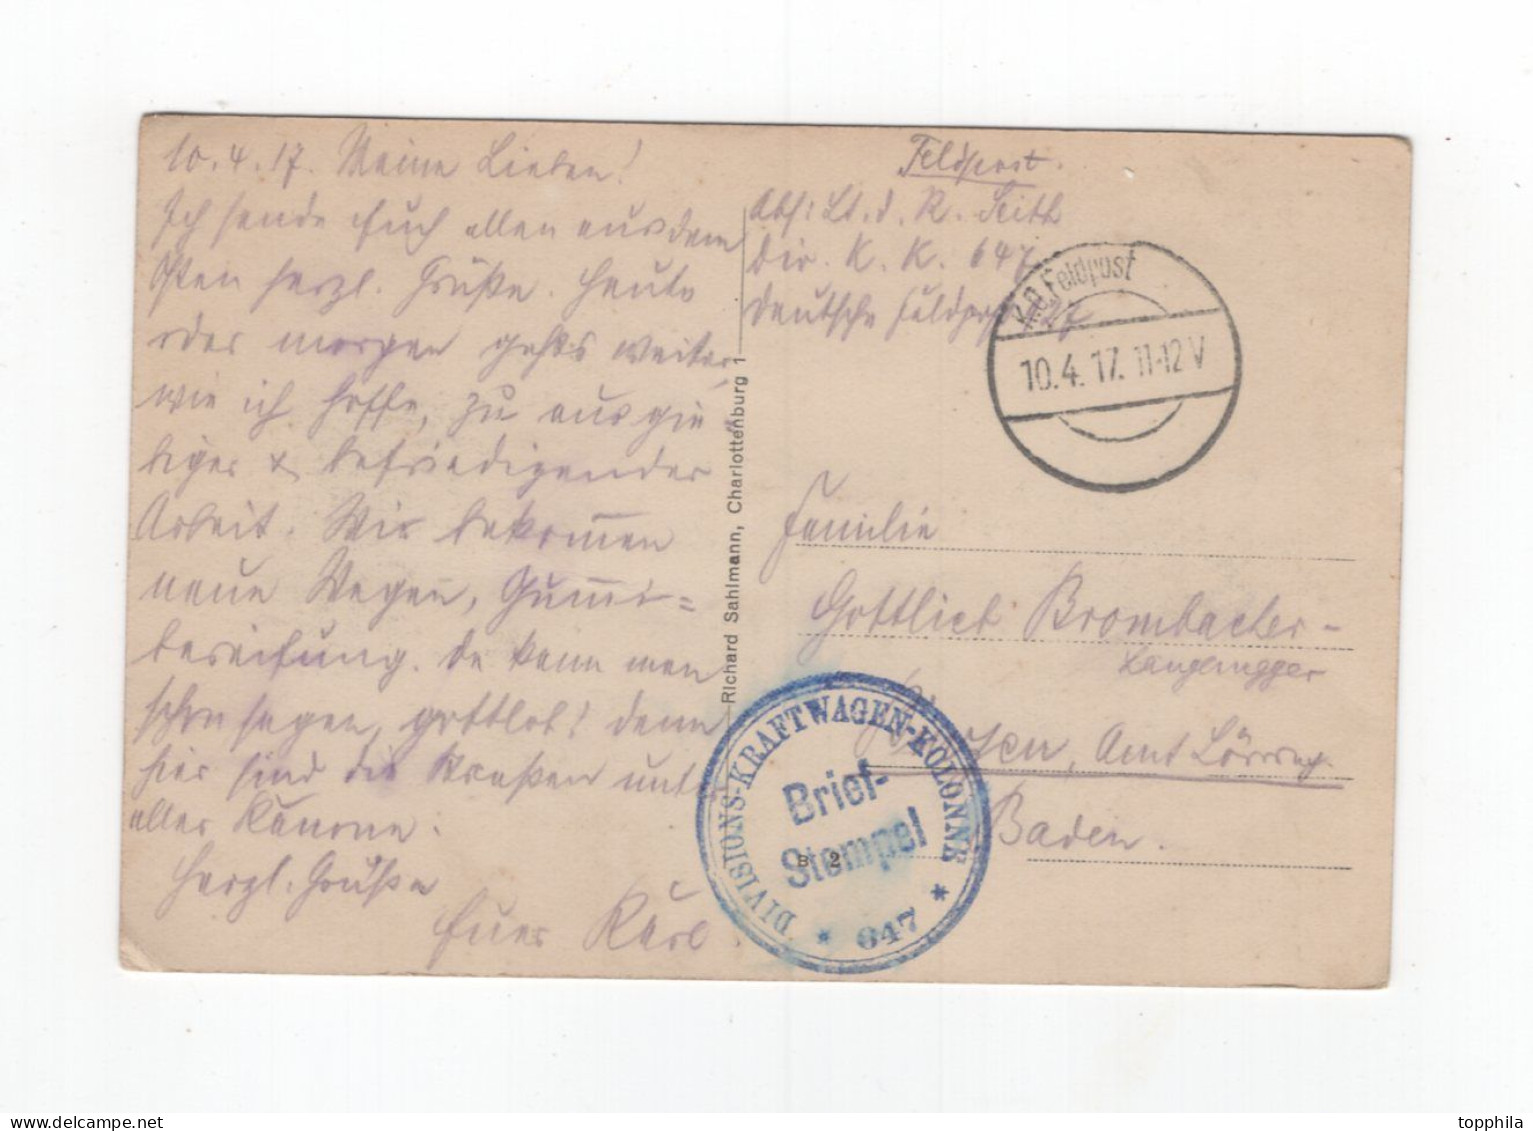 10.4.17. Meine Lieben!
Ich sende Euch allen aus dem
Osten herzl. Grüße. Heute
oder morgen gehts weiter,
wie ich hoffe, zu ausgie-
biger & befriedigender
Arbeit. Wir bekom̅en
neue Wagen, Gum̅i=
bereifung. Da kann man
schon sagen, gottlob! denn
hier sind die Straßen unter
aller Kanone.
Herzl. Grüße
Euer Karl.
Feldpost.
Abs: Lt. d. R. Seith
Div. K. K. 647
Deutsche Feldpost 227
K.D. Feldpost
10.4.17. 11-12V
Familie
Gottlieb Brombacher-
, Amt Lörrach.
Baden.
Richard Sahlmann, Charlottenburg 1
DIVISIONS-KRAFTWAGEN-KOLONNE
Brief-
Stempel
* 647 *
B 2
topphila